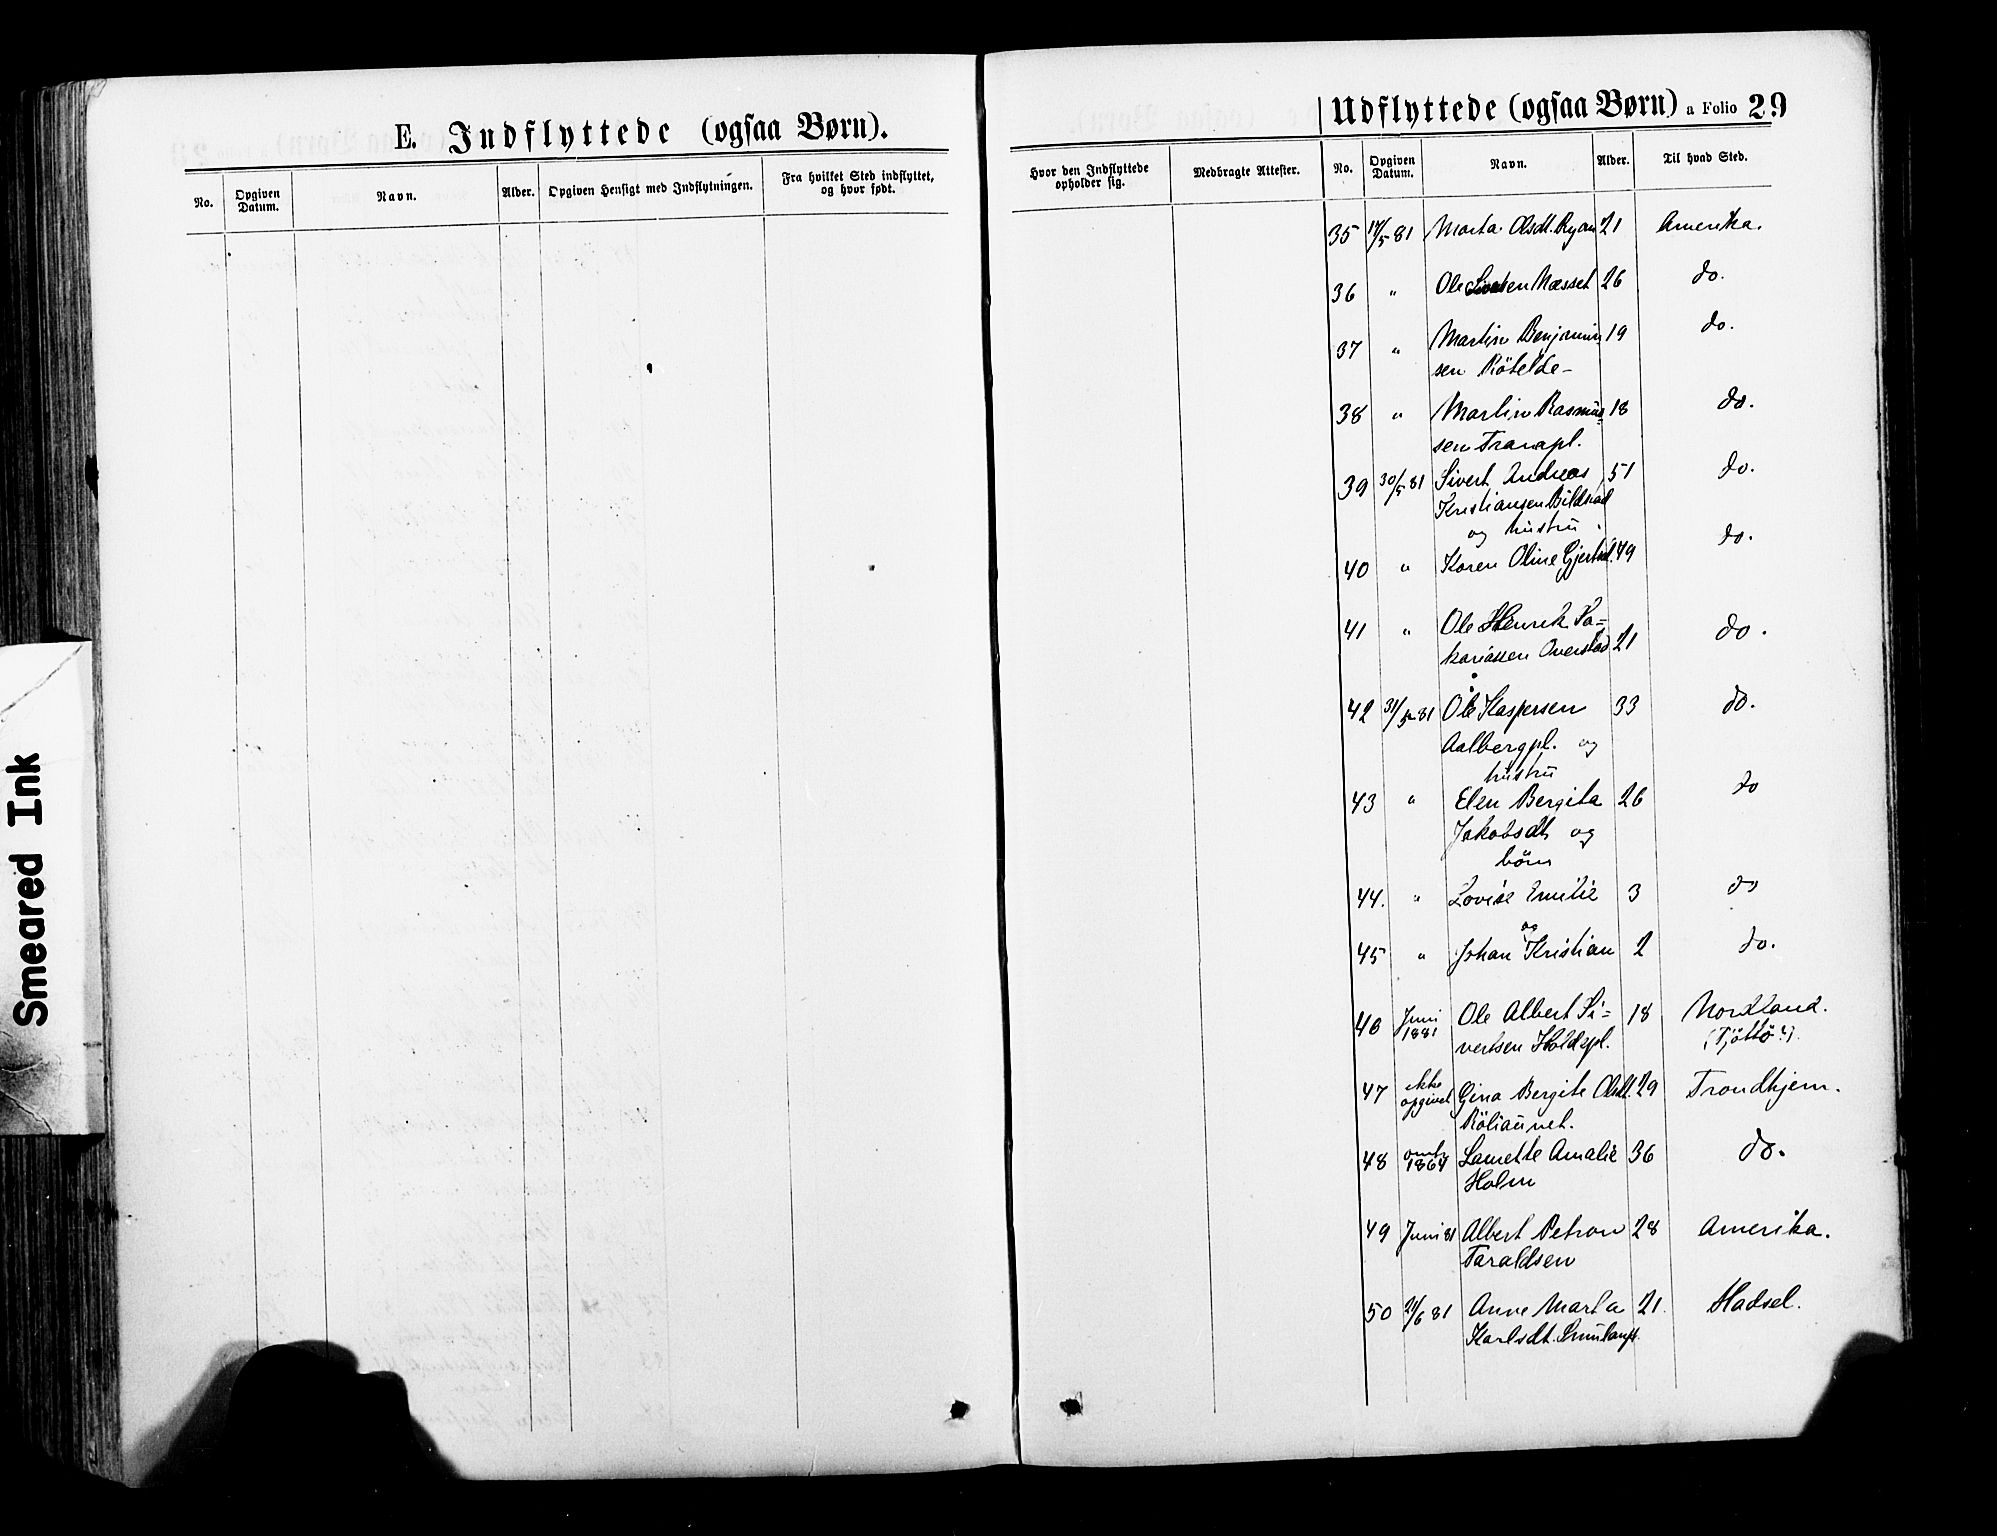 E. Indflyttede (ogsaa Børn).
No. Opgiven Datum. Navn. Alder. Opgiven Hensigt med Indflytningen. Fra hvilket Sted indflyttet, og hvor født.
Udflyttede (ogsaa Børn) a Folio 29
Hvor den Indflyttede opholder sig. Medbragte Attester. No. Opgiven Datum. Navn. Alder. Til hvad Sted.
35 17/5 81 Marta Olsdt. Ryan 21 Amerika.
36 " Ole Næsset 26 do.
37 " Martin Benjamin 19 do.
sen
38 " Martin Rasmus= 18 do.
sen Tranapl.
39 30/5 81 Sivert Andreas 51 do.
Kristiansen Bildstad
og hustru
40 " Karen Oline Gjertsd. 49 do.
41 " Ole Henrik Sa=
kariassen Overstad 21 do.
42 31/5 81 Ole Kaspersen 33 do.
Aalbergpl. og
hustru
43 " Elen Bergita 26 do
Jakobsdt og
börn
44. " Lovise Emilie 3 do
og
45 " Johan Kristian 2 do.
46 Juni 1881 Ole Albert Si= 18 Nordland.
vertsen Holdspl. (Tjöttö?).
47 ikke opgivet Gina Bergite Olsdt. 29 Trondhjem.
Röliaunet.
48 omtr 1864 Laurette Amalie 36 do.
Holm
49 Juni 81 Albert Petron 28 Amerika.
Taraldsen
50 21/6 81 Anne Marta 21. Hadsel.
Karlsdt.
Smeared Ink